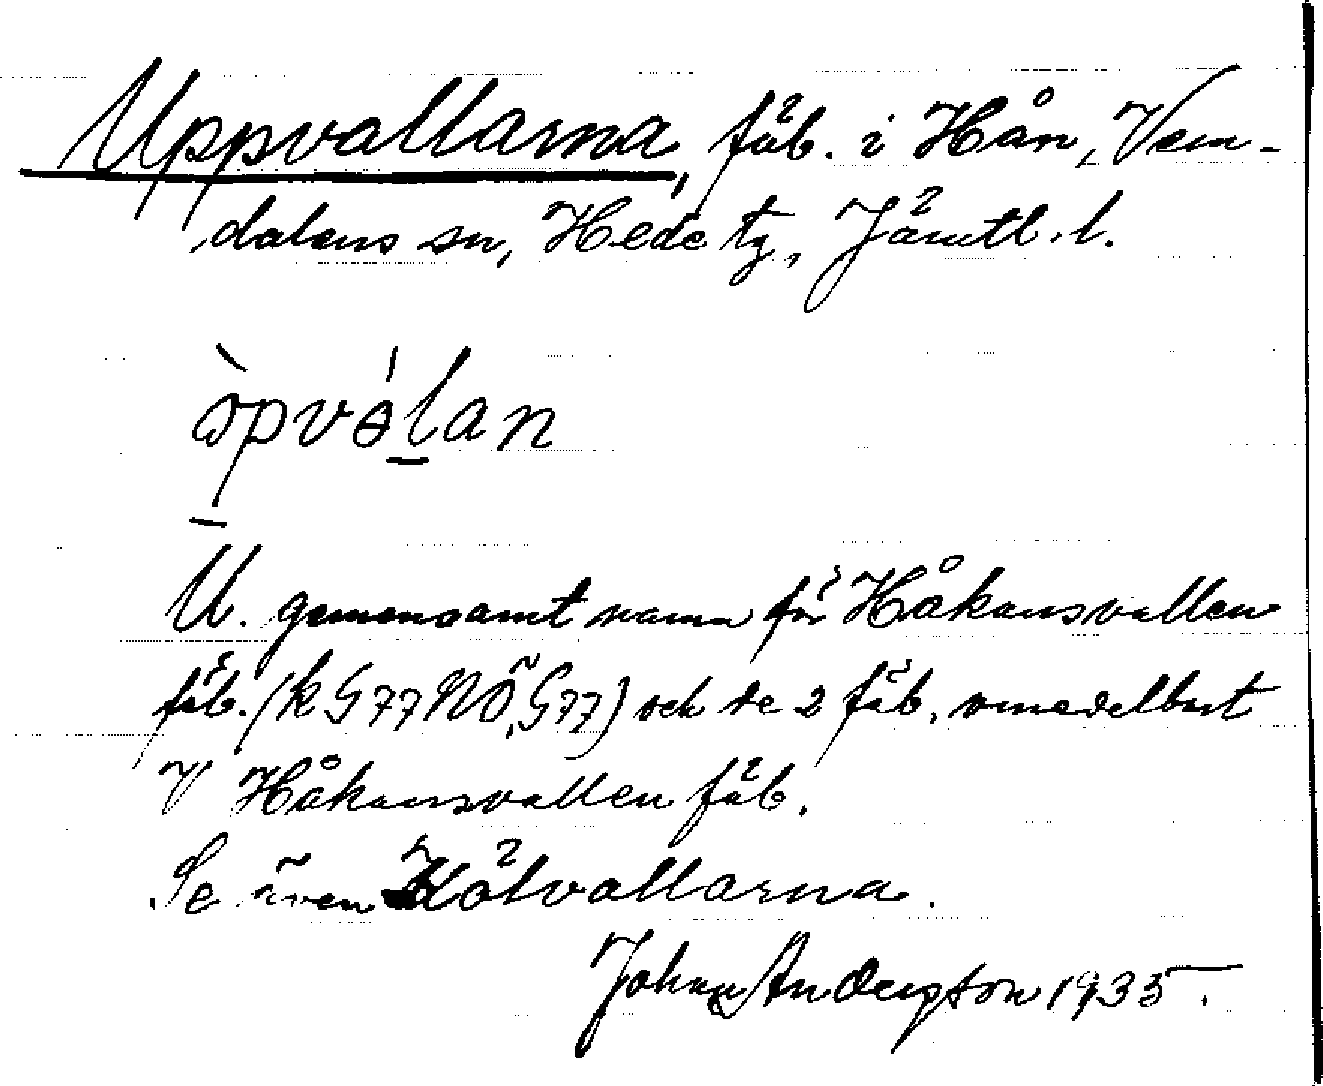 Uppvallarna, fäb. i Hån, Vem-
dalens sn, Hede tg, Jämtl. l.
òpvə́lan
U. gemensamt namn för Håkansvallen
fäb. (k G77NÖ,G77) och de 2 fäb. omedelbart
V Håkansvallen fäb.
Se även Kölvallarna.
Johan Anderzton 1935.